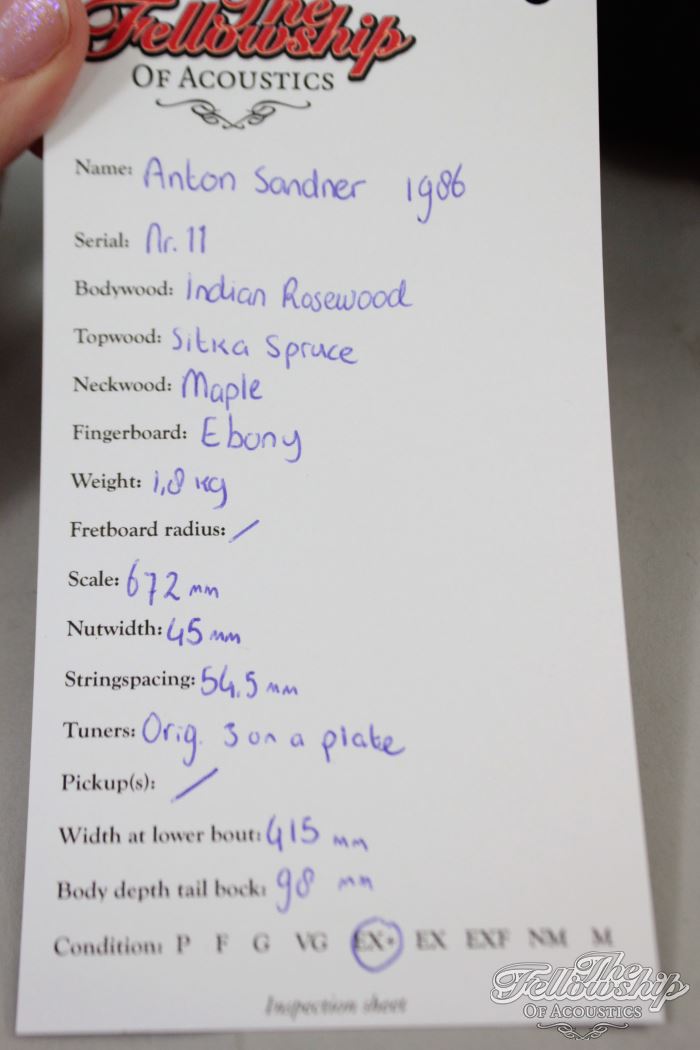 The
Fellowship
OF ACOUSTICS
Name: Anton Sandner 1986
Serial: Nr. 11
Bodywood: Indian Rosewood
Topwood: Sitka Spruce
Neckwood: Maple
Fingerboard: Ebony
Weight: 1,8 kg
Fretboard radius: /
Scale: 672 mm
Nutwidth: 45 mm
Stringspacing: 54.5 mm
Tuners: Orig. 3 on a plate
Pickup(s): /
Width at lower bout: 415 mm
Body depth tail bock: 98 mm
Condition: P F G VG EX+ EX EXF NM M
Inspection sheet
The
Fellowship
OF ACOUSTICS